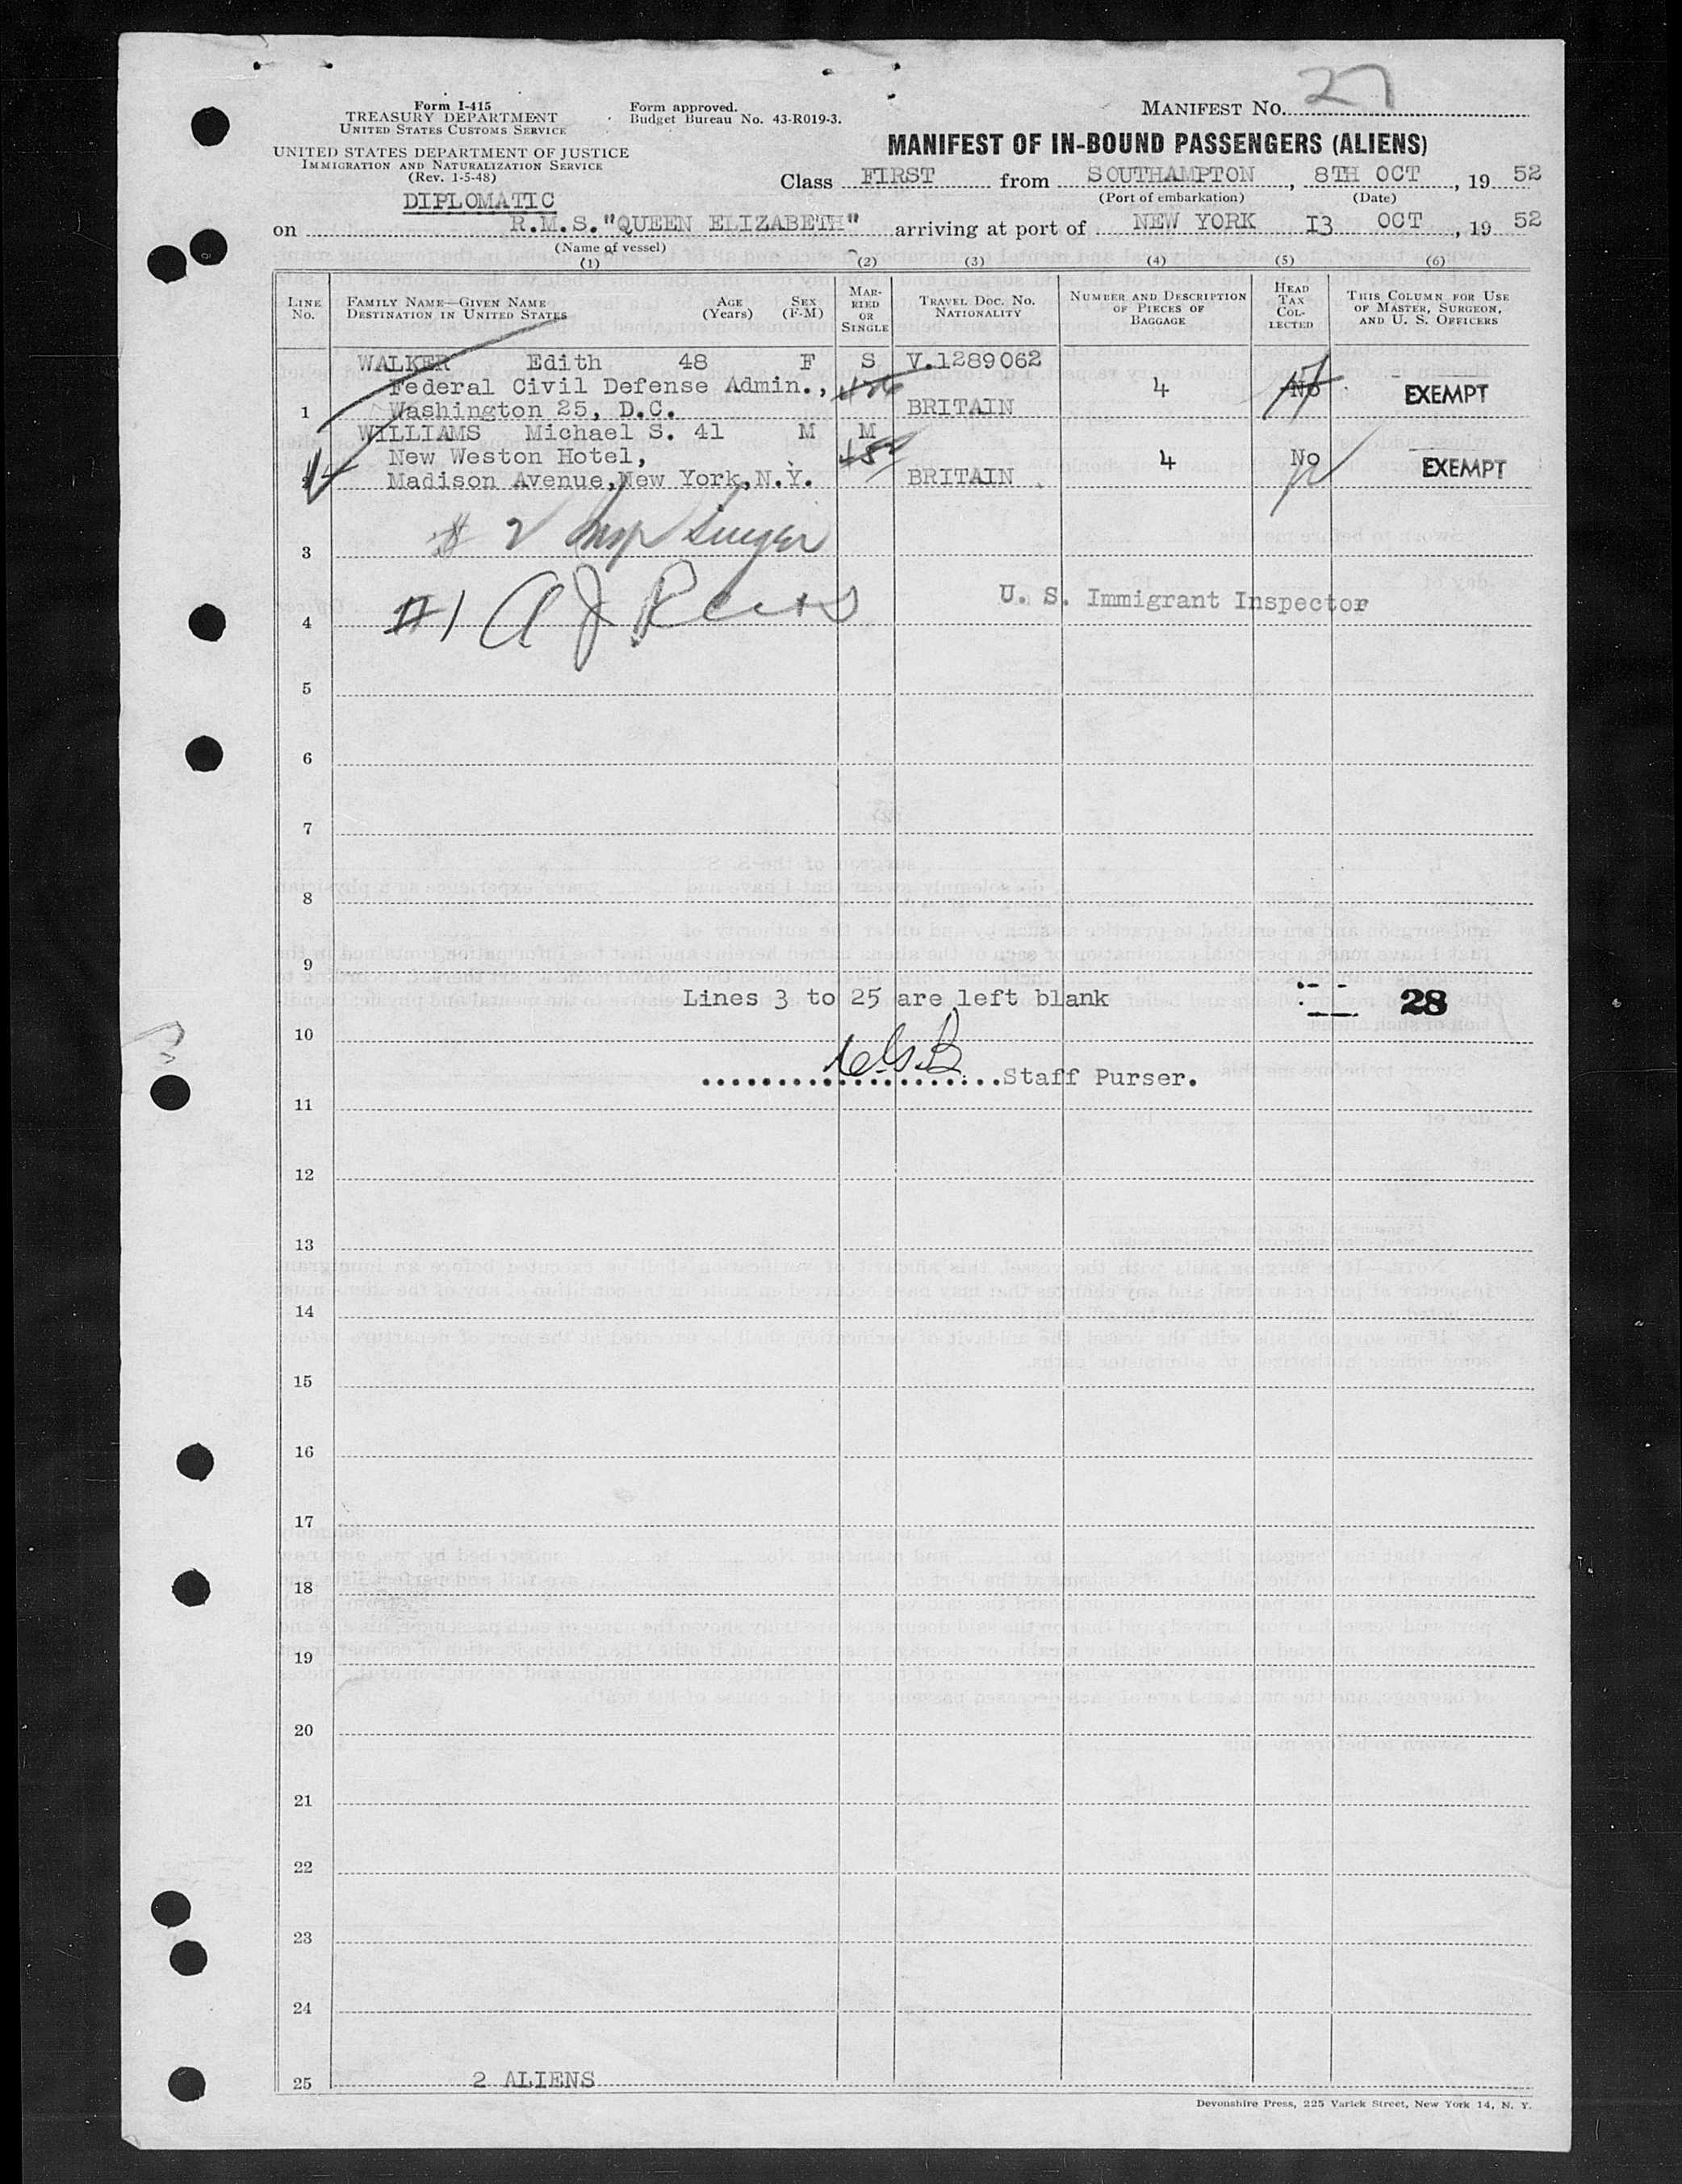 Form I-415
TREASURY DEPARTMENT
UNITED STATES CUSTOMS SERVICE
UNITED STATES DEPARTMENT OF JUSTICE
IMMIGRATION AND NATURALIZATION SERVICE
(Rev. 1-5-48)
Form approved.
Budget Bureau No. 43-R019-3.
MANIFEST NO. 27
MANIFEST OF IN-BOUND PASSENGERS (ALIENS)
Class FIRST from SOUTHAMPTON, 8TH OCT, 19 52
(Port of embarkation) (Date)
DIPLOMATIC
on R.M.S."QUEEN ELIZABETH" arriving at port of NEW YORK 13 OCT, 19 52
(Name of vessel)
(1) (2) (3) (4) (5) (6)
LINE NO. FAMILY NAME—GIVEN NAME DESTINATION IN UNITED STATES AGE (Years) SEX (F-M) MARRIED OR SINGLE TRAVEL DOC. NO. NATIONALITY NUMBER AND DESCRIPTION OF PIECES OF BAGGAGE HEAD TAX COLLECTED THIS COLUMN FOR USE OF MASTER, SURGEON, AND U. S. OFFICERS
WALKER Edith 48 F S V.1289062
Federal Civil Defense Admin., 4 No EXEMPT
1 Washington 25, D.C. BRITAIN
WILLIAMS Michael S. 41 M M
New Weston Hotel, 4 No EXEMPT
2 Madison Avenue,New York,N.Y. BRITAIN
# 2 Insp Singer
3
#1 A J
U. S. Immigrant Inspector
4
5
6
7
8
9
Lines 3 to 25 are left blank 28
10
Staff Purser.
11
12
13
14
15
16
17
18
19
20
21
22
23
24
25 2 ALIENS
Devonshire Press, 225 Varick Street, New York 14, N. Y.